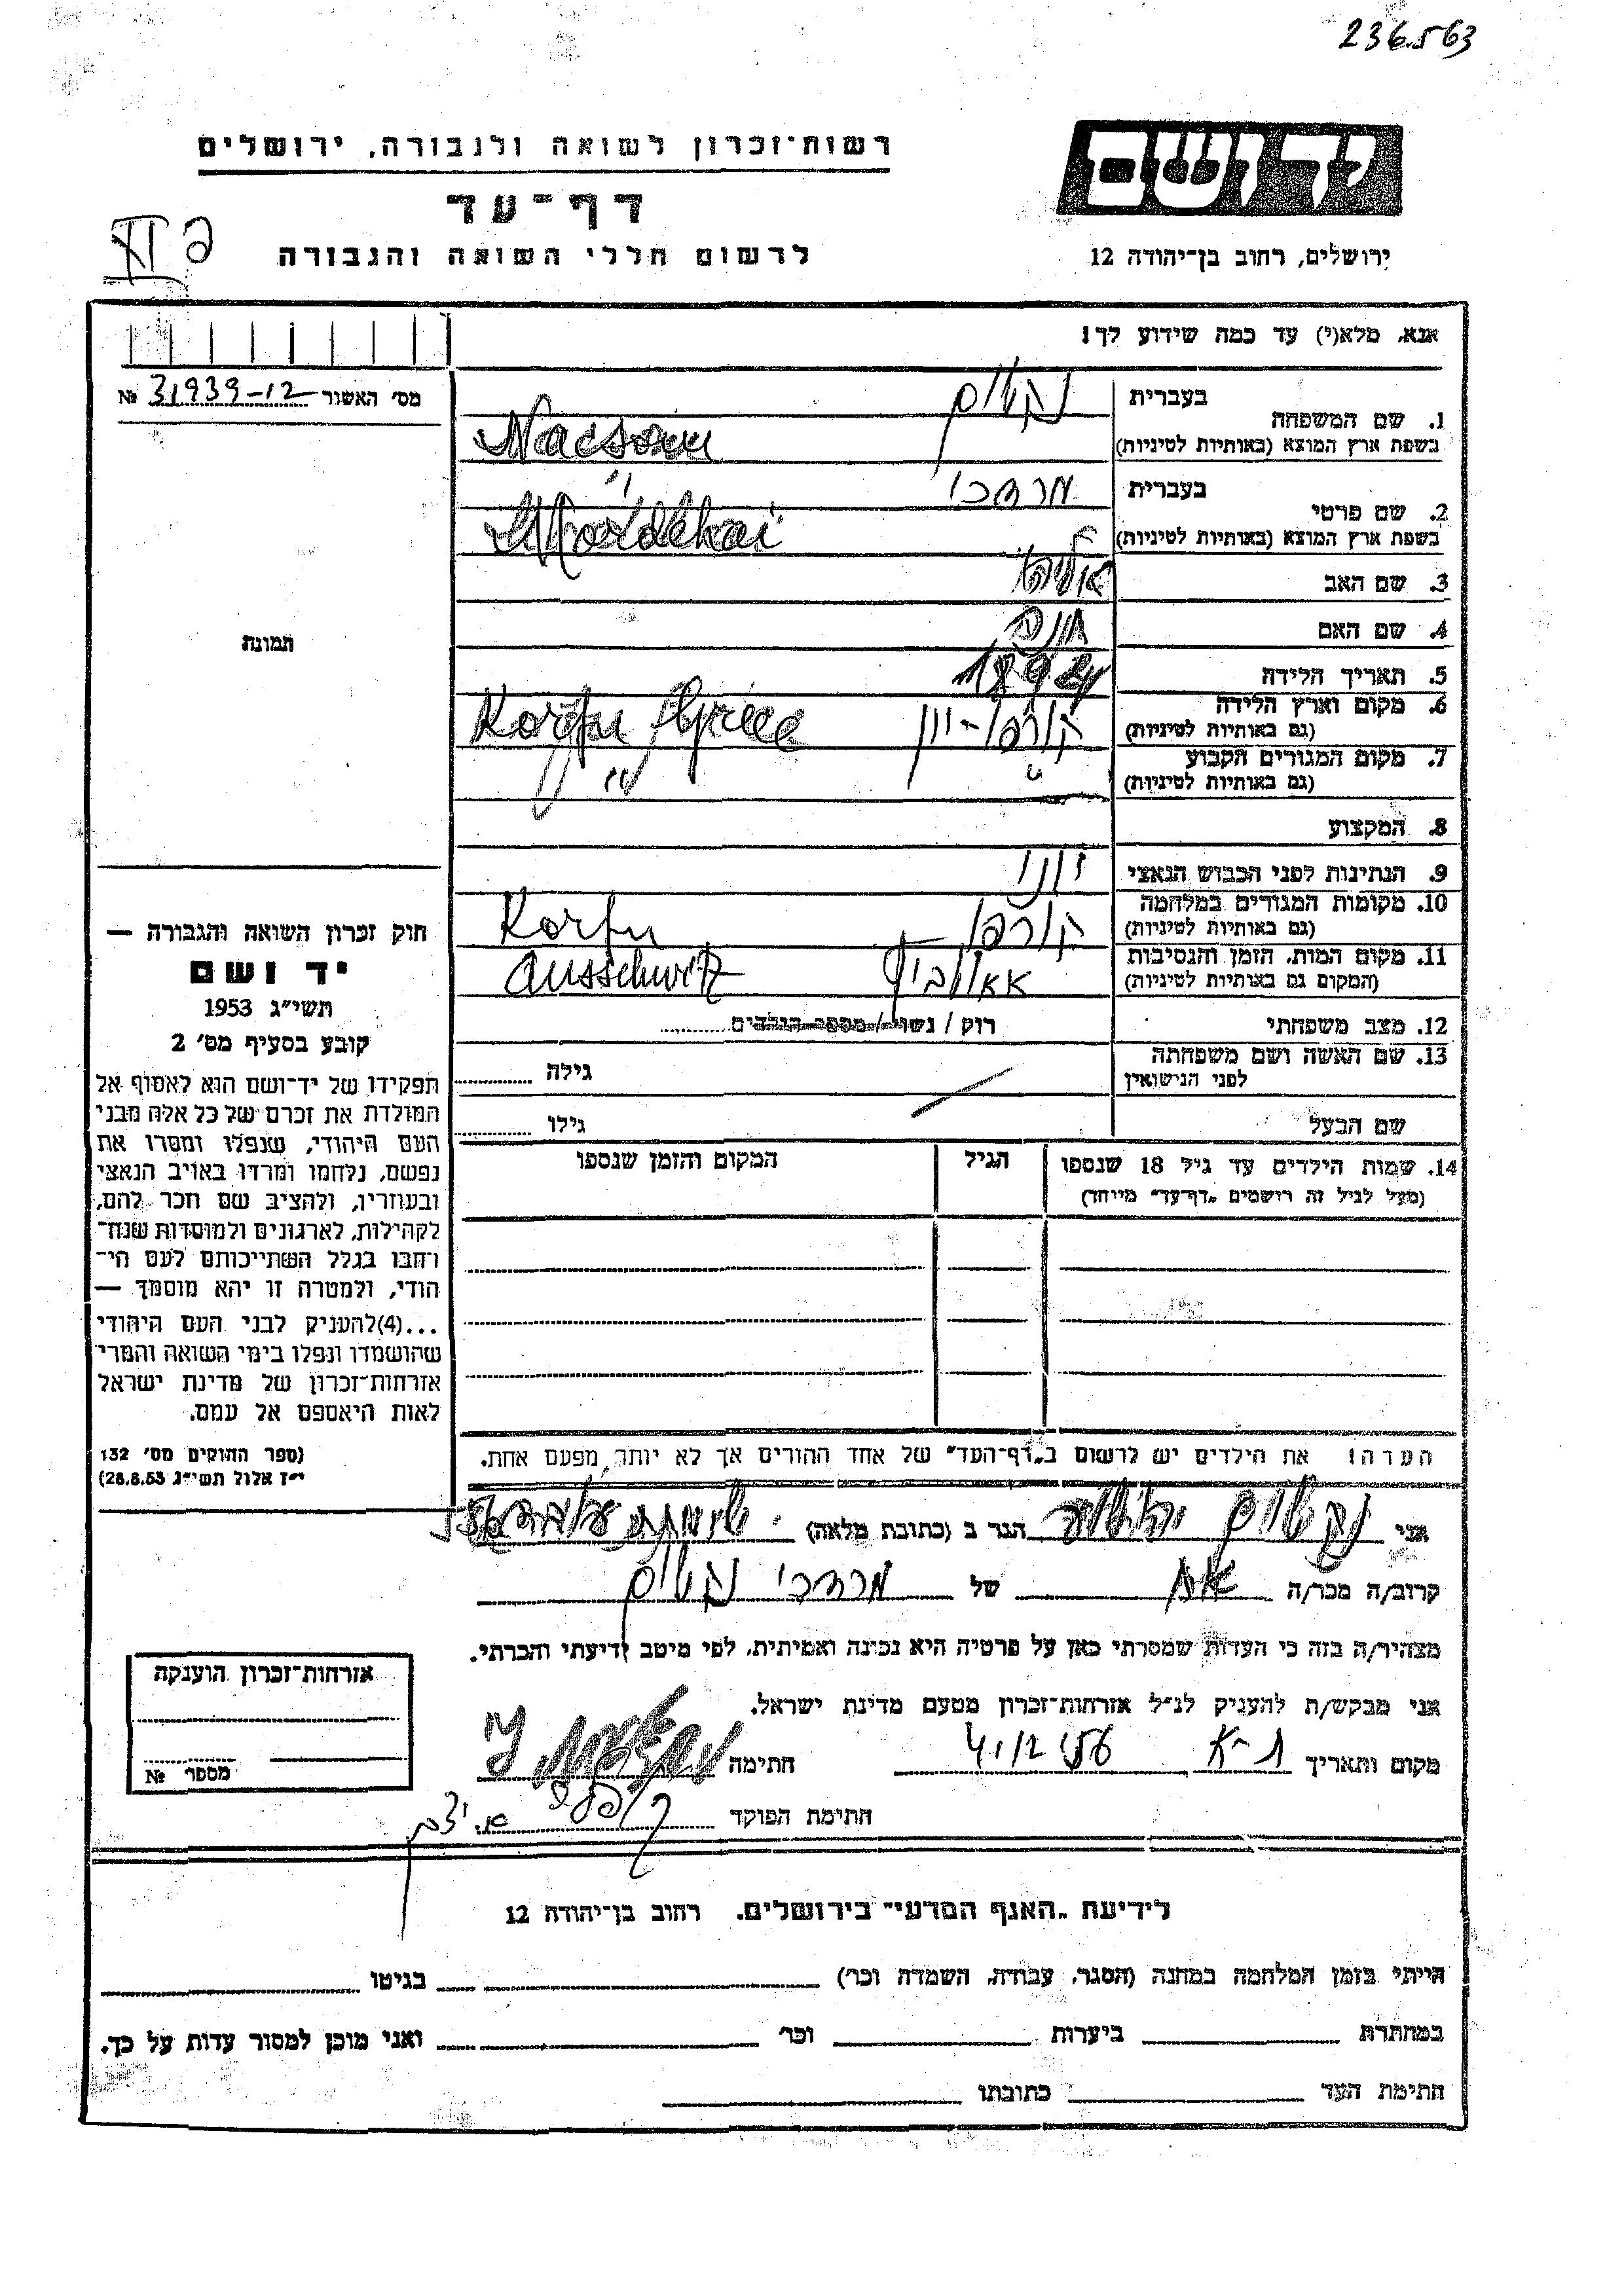 236563
יד ושם
רשות־זכרון לשואה ולגבורה, ירושלים
דף־עד
לרשום חללי השואה והגבורה
ירושלים, רחוב בן־יהודה 12
אנא, מלא(י) עד כמה שידוע לך!
מס׳ האשור 31939-12 №
תמונה
1. שם המשפחה
בעברית נחשום
בשפת ארץ המוצא (באותיות לטיניות) Nacson
2. שם פרטי
בעברית מרדכי
בשפת ארץ המוצא (באותיות לטיניות) Mordekai
3. שם האב
4. שם האם
5. תאריך הלידה
6. מקום וארץ הלידה קורפו - יון
(גם באותיות לטיניות) Korfu Greece
7. מקום המגורים הקבוע
(גם באותיות לטיניות)
8. המקצוע
9. הנתינות לפני הכבוש הנאצי יוני
10. מקומות המגורים במלחמה קורפו
(גם באותיות לטיניות) Korfu
11. מקום המות, הזמן והנסיבות
(המקום גם באותיות לטיניות) Ausschwitz
12. מצב משפחתי רוק / נשוי / מספר הילדים
13. שם האשה ושם משפחתה
לפני הנישואין
גילה
שם הבעל
גילו
14. שמות הילדים עד גיל 18 שנספו
(מעל לגיל זה רושמים „דף־עד” מייחד)
הגיל
המקום והזמן שנספו
חוק זכרון השואה והגבורה —
יד ושם
תשי״ג 1953
קובע בסעיף מס׳ 2
תפקידו של יד־ושם הוא לאסוף אל
המולדת את זכרם של כל אלה מבני
העם היהודי, שנפלו ומסרו את
נפשם, נלחמו ומרדו באויב הנאצי
ובעוזריו, ולהציב שם וזכר להם,
לקהילות, לארגונים ולמוסדות שנח־
רבו בגלל השתייכותם לעם הי־
הודי, ולמטרה זו יהא מוסמך —
...(4)להעניק לבני העם היהודי
שהושמדו ונפלו בימי השואה והמרי
אזרחות־זכרון של מדינת ישראל
לאות היאספם אל עמם.
(ספר החוקים מס׳ 132
י״ז אלול תשי״ג 28.8.53)
הערה! את הילדים יש לרשום ב„דף־העד” של אחד ההורים אך לא יותר מפעם אחת.
אני הגר ב (כתובת מלאה)
קרוב/ה מכר/ה אח של מרדכי נחשום
מצהיר/ה בזה כי העדות שמסרתי כאן על פרטיה היא נכונה ואמיתית, לפי מיטב ידיעתי והכרתי.
אני מבקש/ת להעניק לנ״ל אזרחות־זכרון מטעם מדינת ישראל.
מקום ותאריך ת-א חתימה
חתימת הפוקד
אזרחות־זכרון הוענקה
מספר №
לידיעת „האגף המדעי” בירושלים. רחוב בן־יהודה 12
הייתי בזמן המלחמה במחנה (הסגר, עבודה, השמדה וכו׳) בגיטו
במחתרת ביערות וכו׳ ואני מוכן למסור עדות על כך.
חתימת העד כתובתו